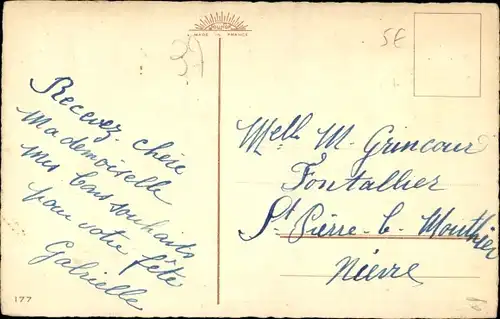 MADE IN FRANCE
37
SE
Recevez chère
Mademoiselle
mes bons souhaits
pour votre fête
Gabrielle
Melle M. Grincour
Fontallier
St Pierre-le-Mouthier
Nièvre
177